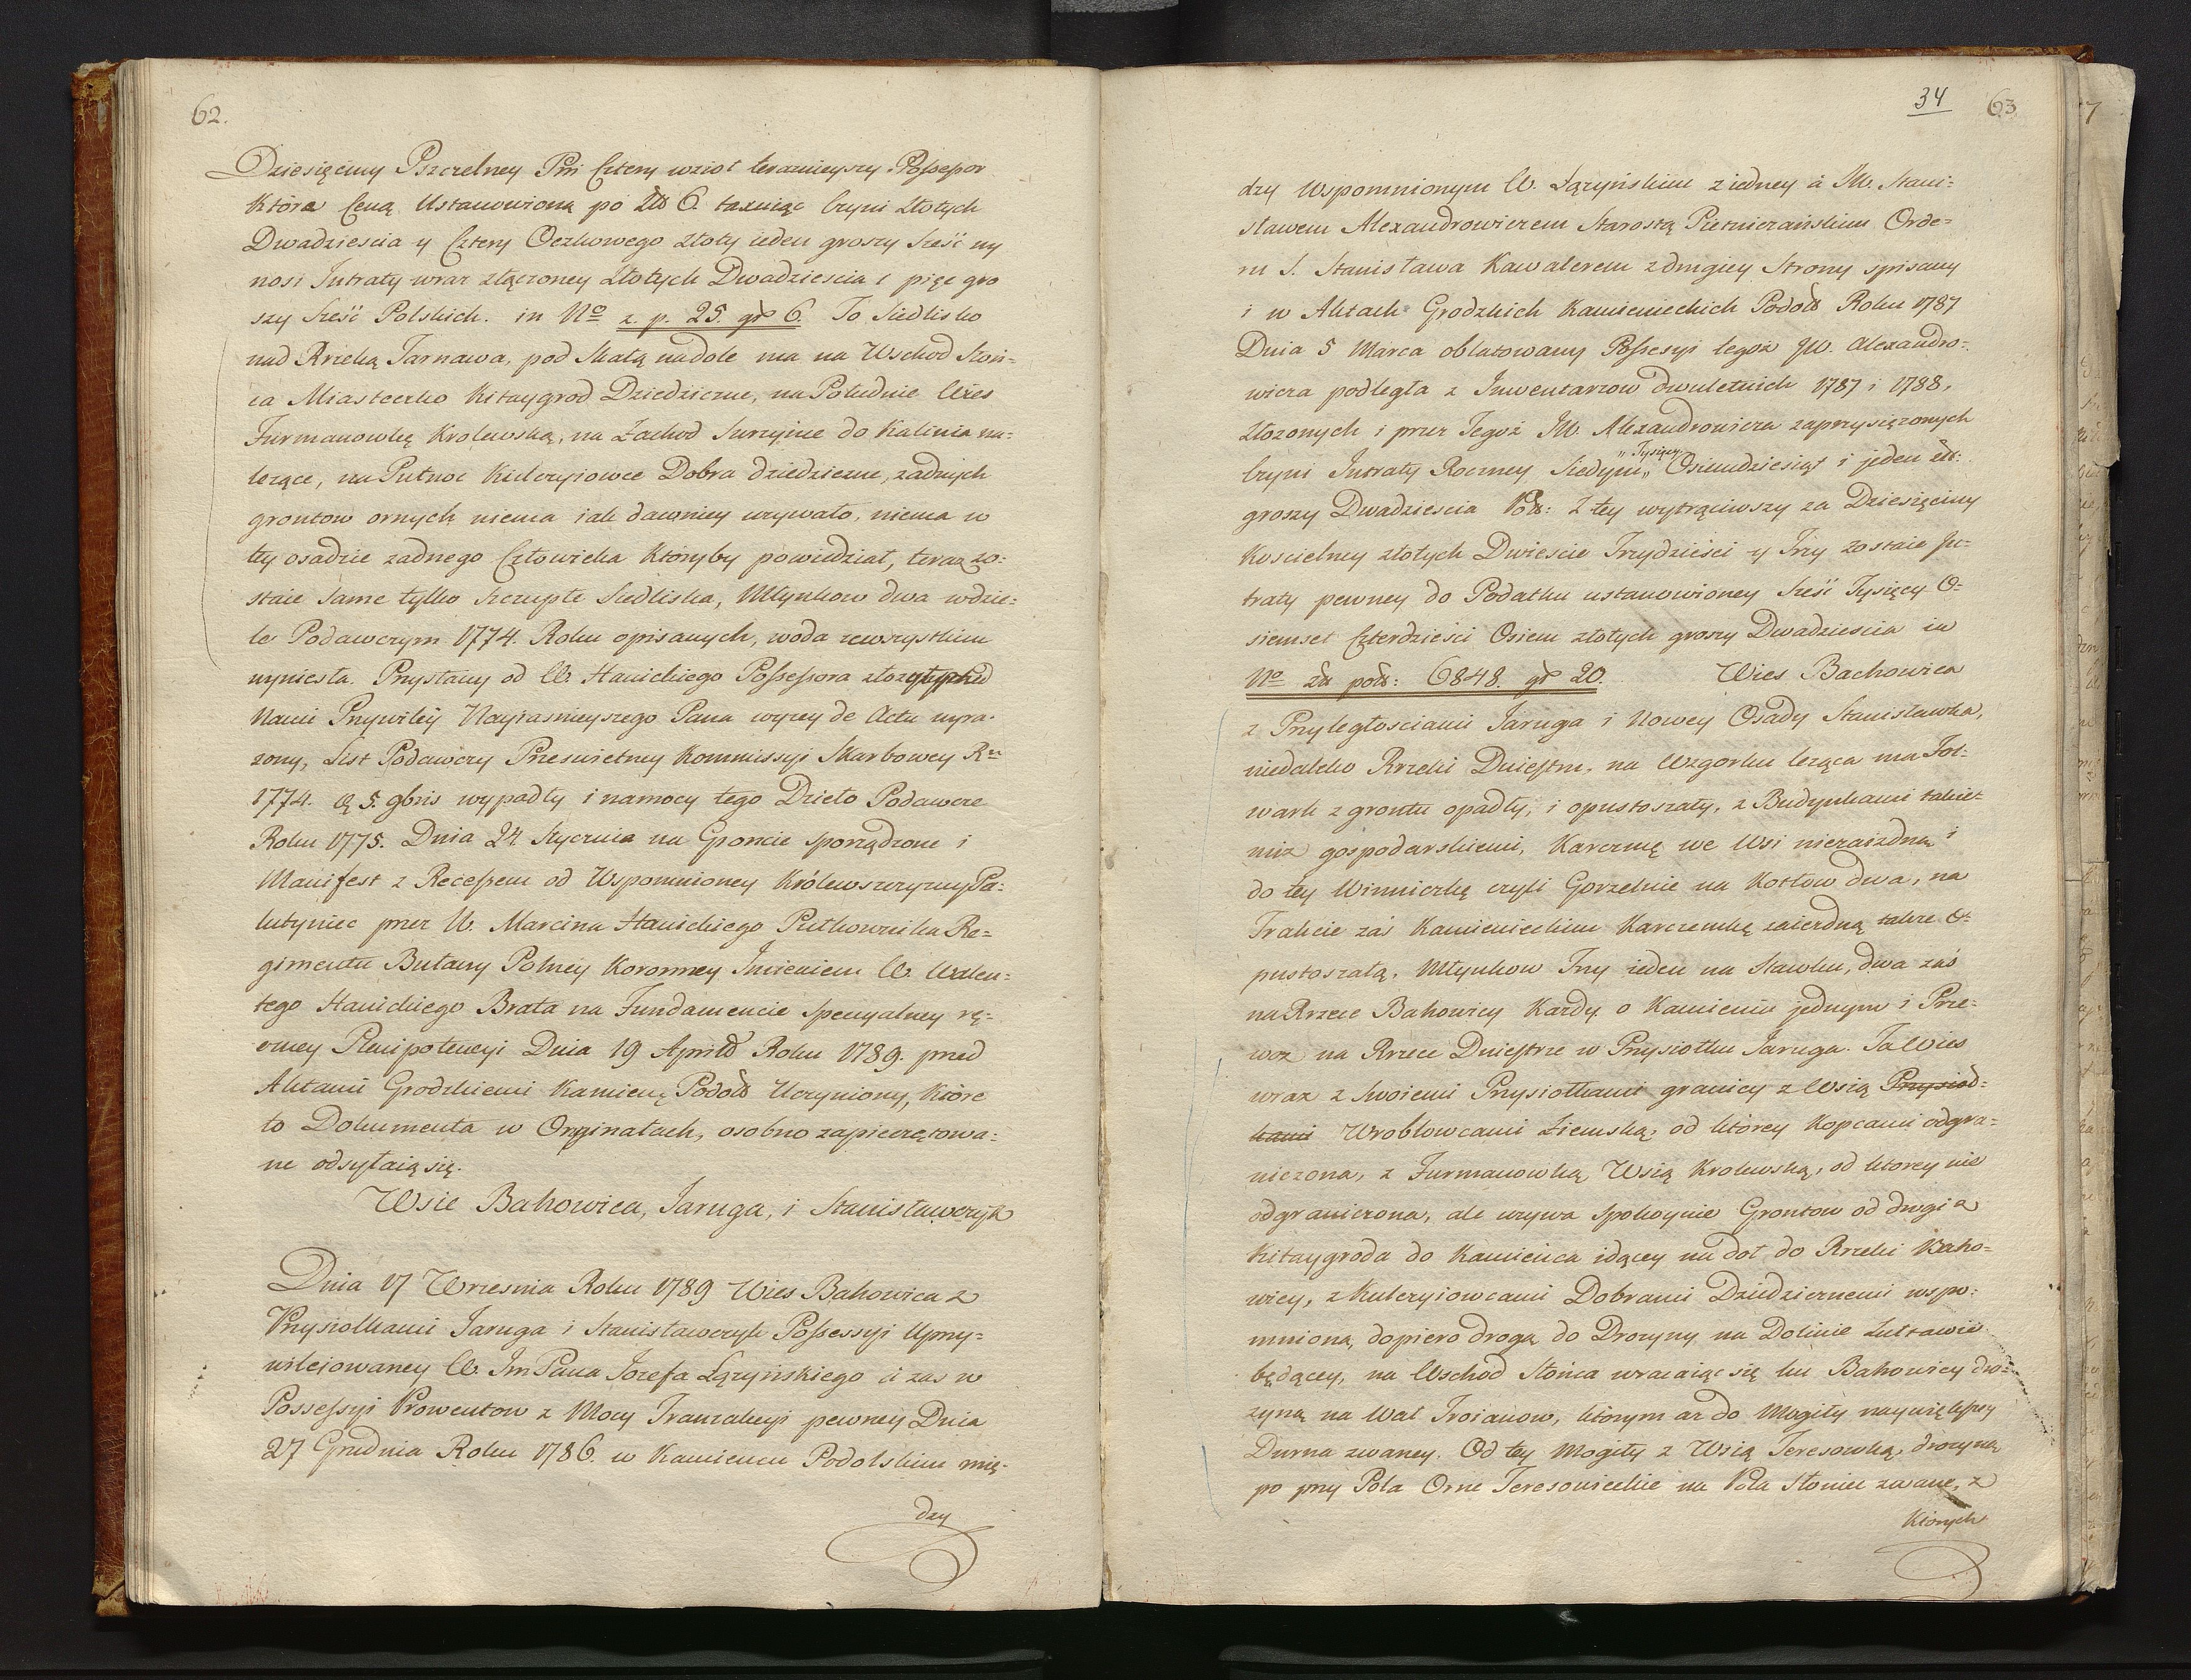 62.
Dziesięciny Pszczelney Pni Cztery wziol teraznieyszy Possessor
Które Ceną Ustanowioną po Zł 6. taxuiąc czyni Złotych
Dwadziescia y Cztery Oczkowego złoty ieden groszy Sześć wy
nosi Intraty wraz złączoney Złotych Dwadziescia i pięć gro
szy Sześć Polskich. in No z. p. 25. gr 6. To Siedlisko
nad Rzeką Tarnawa, pod Skałą nadole ma na Wschod Słoń-
ca Miasteczko Kitaygrod Dziedziczne, na Południe Wies
Furmanowkę Krolewską, na Zachod Surzyine do Kalinia na-
leżące, na Pułnoc Kulczyiowce Dobra dziedziczne, zadnych
grontow ornych niema iak dawniey uzywało, niema w
tey osadzie zadnego Człowieka Ktoryby powiedział, teraz zo-
staie same tylko szczupłe Siedliska, Młynkow dwa w dzie-
le Podawczym 1774. Roku opisanych, woda zewszystkim
wyniesła. Przystawy od W. Hanickiego Possessora złozył przed
Nami Przywiley Nayjasnieyszego Pana wyzey de Actu wyra-
zony, List Podawczy Prześwietney Kommissyi Skarbowey Rku
1774. d 5. gbris wypadły i namocy tego Dzieło Podawcze
Roku 1775. Dnia 24 Stycznia na Groncie sporządzone i
Manifest z Recessem od Wspomnioney Królewszczyzny Pa-
lutyniec przez W. Marcina Hanickiego Pułkownika Re-
gimentu Buławy Polney Koronney Imieniem W. Walen-
tego Hanickiego Brata na Fundamencie specyalney rę-
czney Plenipotencyi Dnia 19 Aprild Roku 1789. przed
Aktami Grodzkiemi Kamienę Podold Uczyniony, Które
to Dokumenta w Orginałach, osobno zapieczętowa-
ne odsyłaią się.
Wsie Bakowica, Jaruga, i Stanisławczyk
Dnia 17 Wrzesnia Roku 1789 Wies Bakowica z
Przysiołkami Jaruga i Stanisławczyk Possessyi Uprzy-
wileiowaney W. Jm Pana Jozefa Łączyńskiego á zas w
Possessyi Prowentow z Mocy Tranzakcyi pewney Dnia
27 Grudnia Roku 1786. w Kamiencu Podolskim mię-
dzy
34 63
dzy Wspomnionym W. Łączyńskim z iedney á JW. Stani-
sławem Alexandrowiczem Starostą Pietniczańskim Orde-
ru S. Stanisława Kawalerem z drugiey Strony spisany
i w Aktach Grodzkich Kamienieckich Podold Roku 1787
Dnia 5 Marca oblatowany Possesyi tegoż JW. Alexandro-
wicza podległa z Inwentarzow dwuletnich 1787 i 1788,
złozonych i przez Tegoż JW. Alexandrowicza zaprzysiężonych
czyni Intraty Roczney Siedym „Tysięcy„ Osiemdziesiąt i jeden złł:
groszy Dwadziescia Pols: Z tey wytrąciwszy za Dziesięciny
Koscielney złotych Dwiescie Trzydzieści y Trzy zostaie In-
traty pewney do Podatku ustanowioney Sześć Tysięcy O-
siemset Czterdzieści Osiem złotych groszy Dwadziescia in
No Zł pols: 6848. gr 20. Wies Bachowica
z Przyległosciami Jaruga i Nowey Osady Stanisławka,
niedaleko Rzeki Dniestru, na Wzgorku leżąca ma Fol-
wark z gruntu opadły, i opustoszały, z Budynkami takiel-
miz gospodarskiemi, Karczmę we Wsi niezaizdną i
do tey Winniczkę czyli Gorzelnie na Kotłow dwa, na
Trakcie zaś Kamienieckim Karczemkę zaiezdną takze o-
pustoszałą, Młynkow Trzy ieden na Stawku, dwa zaś
na Rzece Bakowicy Kazdy o Kamieniu jednym i Prze-
woz na Rzece Dniestrze w Przysiołku Jaruga. Ta Wies
wraz z Swoiemi Przysiołkami graniczy z Wsią Przysioł-
kami Wroblowcami Ziemską, od którey Kopcami odgra-
niczona, z Furmanowką Wsią Krolewską, od ktorey nie
odgraniczona, ale uzywa spokoynie Grontow od drogi z
Kitaygroda do Kamieńca idącey na doł do Rzeki Bako-
wicy, z Kulczyiowcami Dobrami Dziedzicznemi wspo-
mnioną dopiero drogą do Drozyny na Dolinie Lutrawie
będącey, na Wschod Słońca wracaiąc się ku Bakowicy dro-
zyną na Wał Troianow, którym az do Mogiły naywiększey
Durna zwaney. Od tey Mogiły z Wsią Teresowką, drozyną
po przy Pola Orne Teresowieckie na Pola Słoniec zwane, z
Kiorych